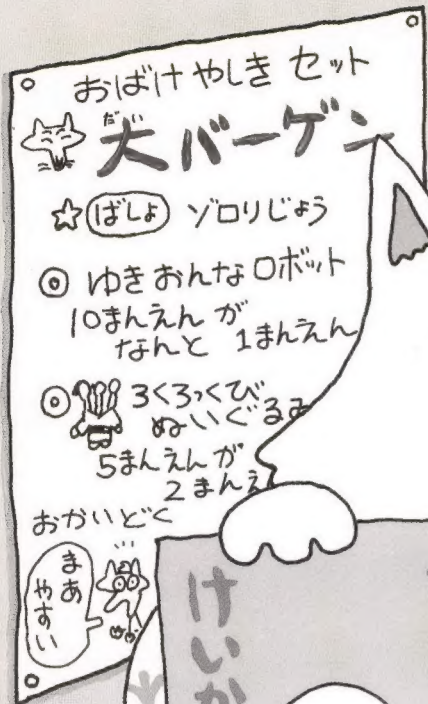 おばけやしき セット
だい
大バーゲン
☆ばしょ ゾロリじょう
◎ ゆきおんなロボット
10まんえん が
なんと 1まんえん
◎ 3くろっくび
ぬいぐるみ
5まんえん が
2まんえ
おかいどく
まあ
やすい
けいか